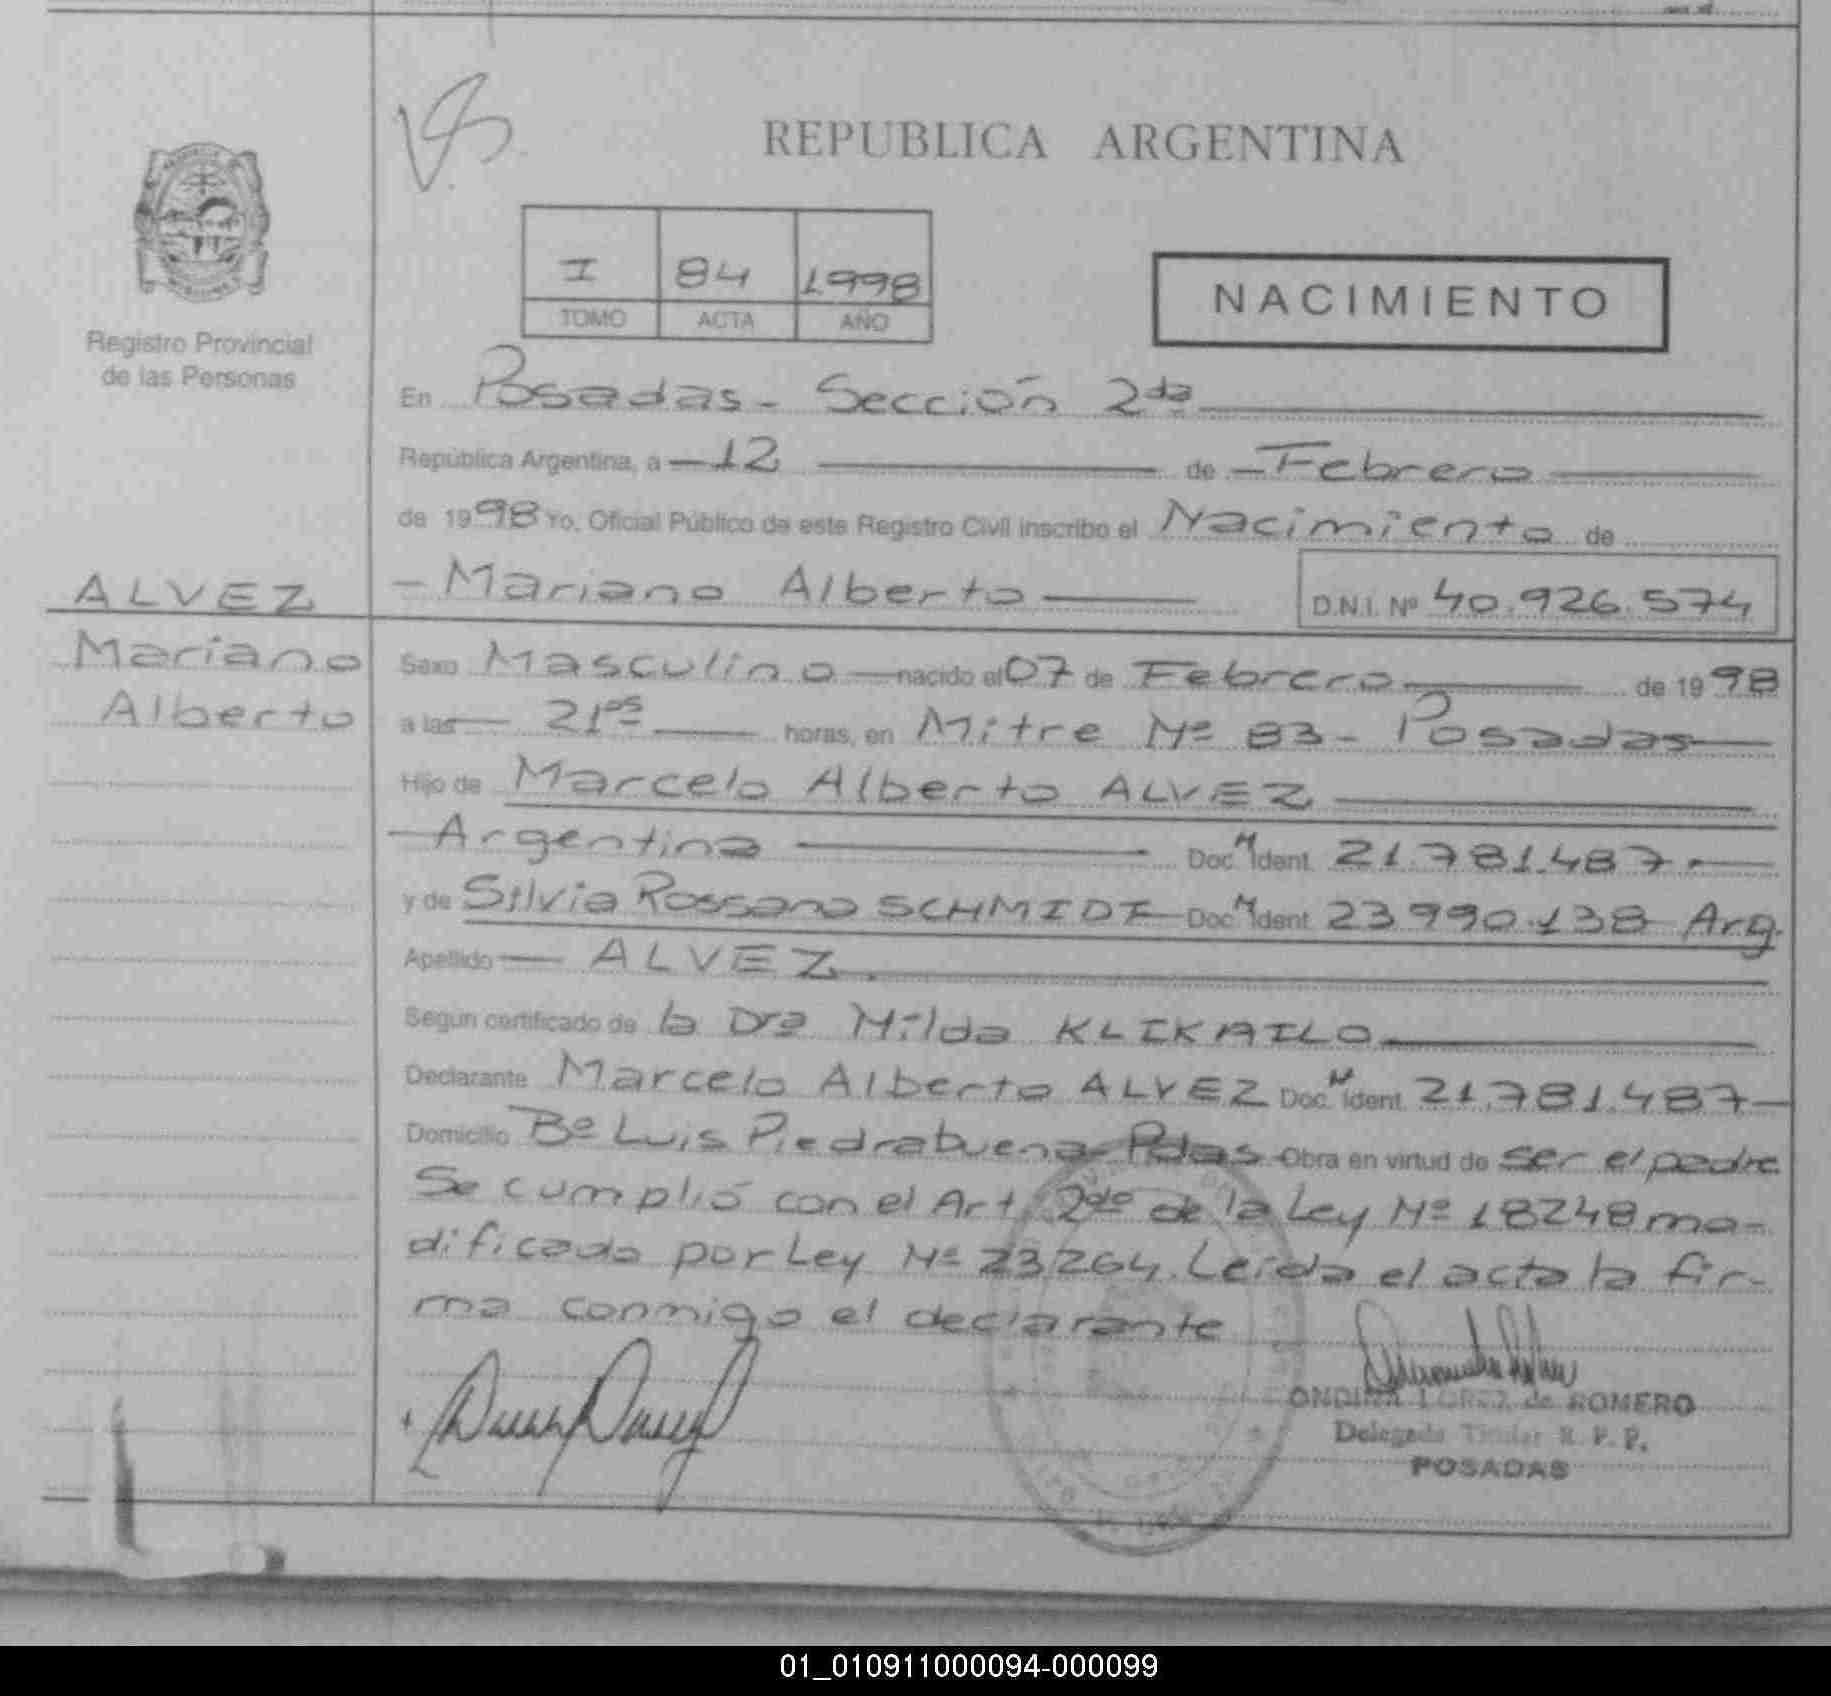 REPUBLICA ARGENTINA
I 84 1998
TOMO ACTA AÑO
NACIMIENTO
Registro Provincial
de las Personas
En Posadas - Sección 2da
República Argentina, a 12 de Febrero
de 1998 Yo, Oficial Público de este Registro Civil inscribo el Nacimiento de
ALVEZ
Mariano
Alberto
Mariano Alberto D.N.I. Nº 40.926.574
Sexo Masculino nacido el 07 de Febrero de 1998
a las 21 05 horas, en Mitre Nº 83 - Posadas
Hijo de Marcelo Alberto ALVEZ
Argentina Doc. N Ident. 21.781.487
y de Silvia Rossana SCHMIDT Doc. N Ident. 23.990.138 Arg.
Apellido ALVEZ
Según certificado de la Dra Hilda KLIKAILO
Declarante Marcelo Alberto ALVEZ Doc. N Ident. 21.781.487
Domicilio Bº Luis Piedrabuena - Pdas Obra en virtud de ser el padre
Se cumplió con el Art 2do de la Ley Nº 18248 mo-
dificado por Ley Nº 23264. Leída el acta la fir-
ma conmigo el declarante
ONDINA LOPEZ de ROMERO
Delegada Titular R. P. P.
POSADAS
01_010911000094-000099